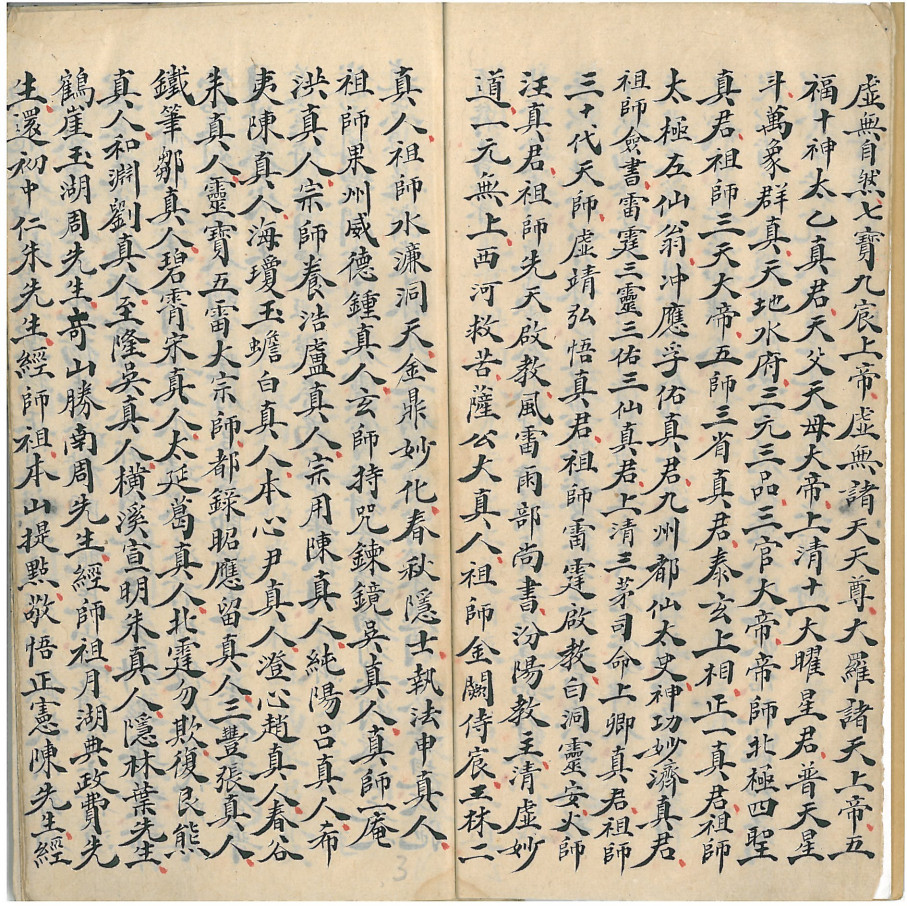 虛無自然七寶九宸上帝虛無諸天天尊大羅諸天上帝五
福十神太乙真君天父天母大帝上清十一大曜星君普天星
斗萬象群真天地水府三元三品三官大帝帝師北極四聖
真君祖師三天大帝五師三省真君泰玄上相正一真君祖師
太極左仙翁冲應孚佑真君九州都仙太史神功妙濟真君
祖師僉書雷霆三靈三佑三仙真君上清三茅司命上卿真君祖師
三十代天師虛靖弘悟真君祖師雷霆啟教白洞靈安火師
汪真君祖師先天啟教風雷雨部尚書汾陽教主清虛妙
道一元無上西河救苦薩公大真人祖師金闕侍宸王林二
真人祖師水濂洞天金鼎妙化春秋隱士執法申真人
祖師果州威德鍾真人玄師持咒鍊鏡吳真人真師一庵
洪真人宗師養浩盧真人宗用陳真人純陽呂真人希
夷陳真人海瓊玉蟾白真人本心尹真人澄心趙真人春谷
朱真人靈寶五雷大宗師都錄昭應留真人三豐張真人
鐵筆鄒真人碧霄宋真人太延葛真人北霆勿欺復艮熊
真人和淵劉真人至隆吳真人橫溪宣明朱真人隱林葉先生
鶴崖玉湖周先生奇山勝南周先生經師祖月湖典政費先
生還初中仁朱先生經師祖本山提點敬悟正憲陳先生經
3